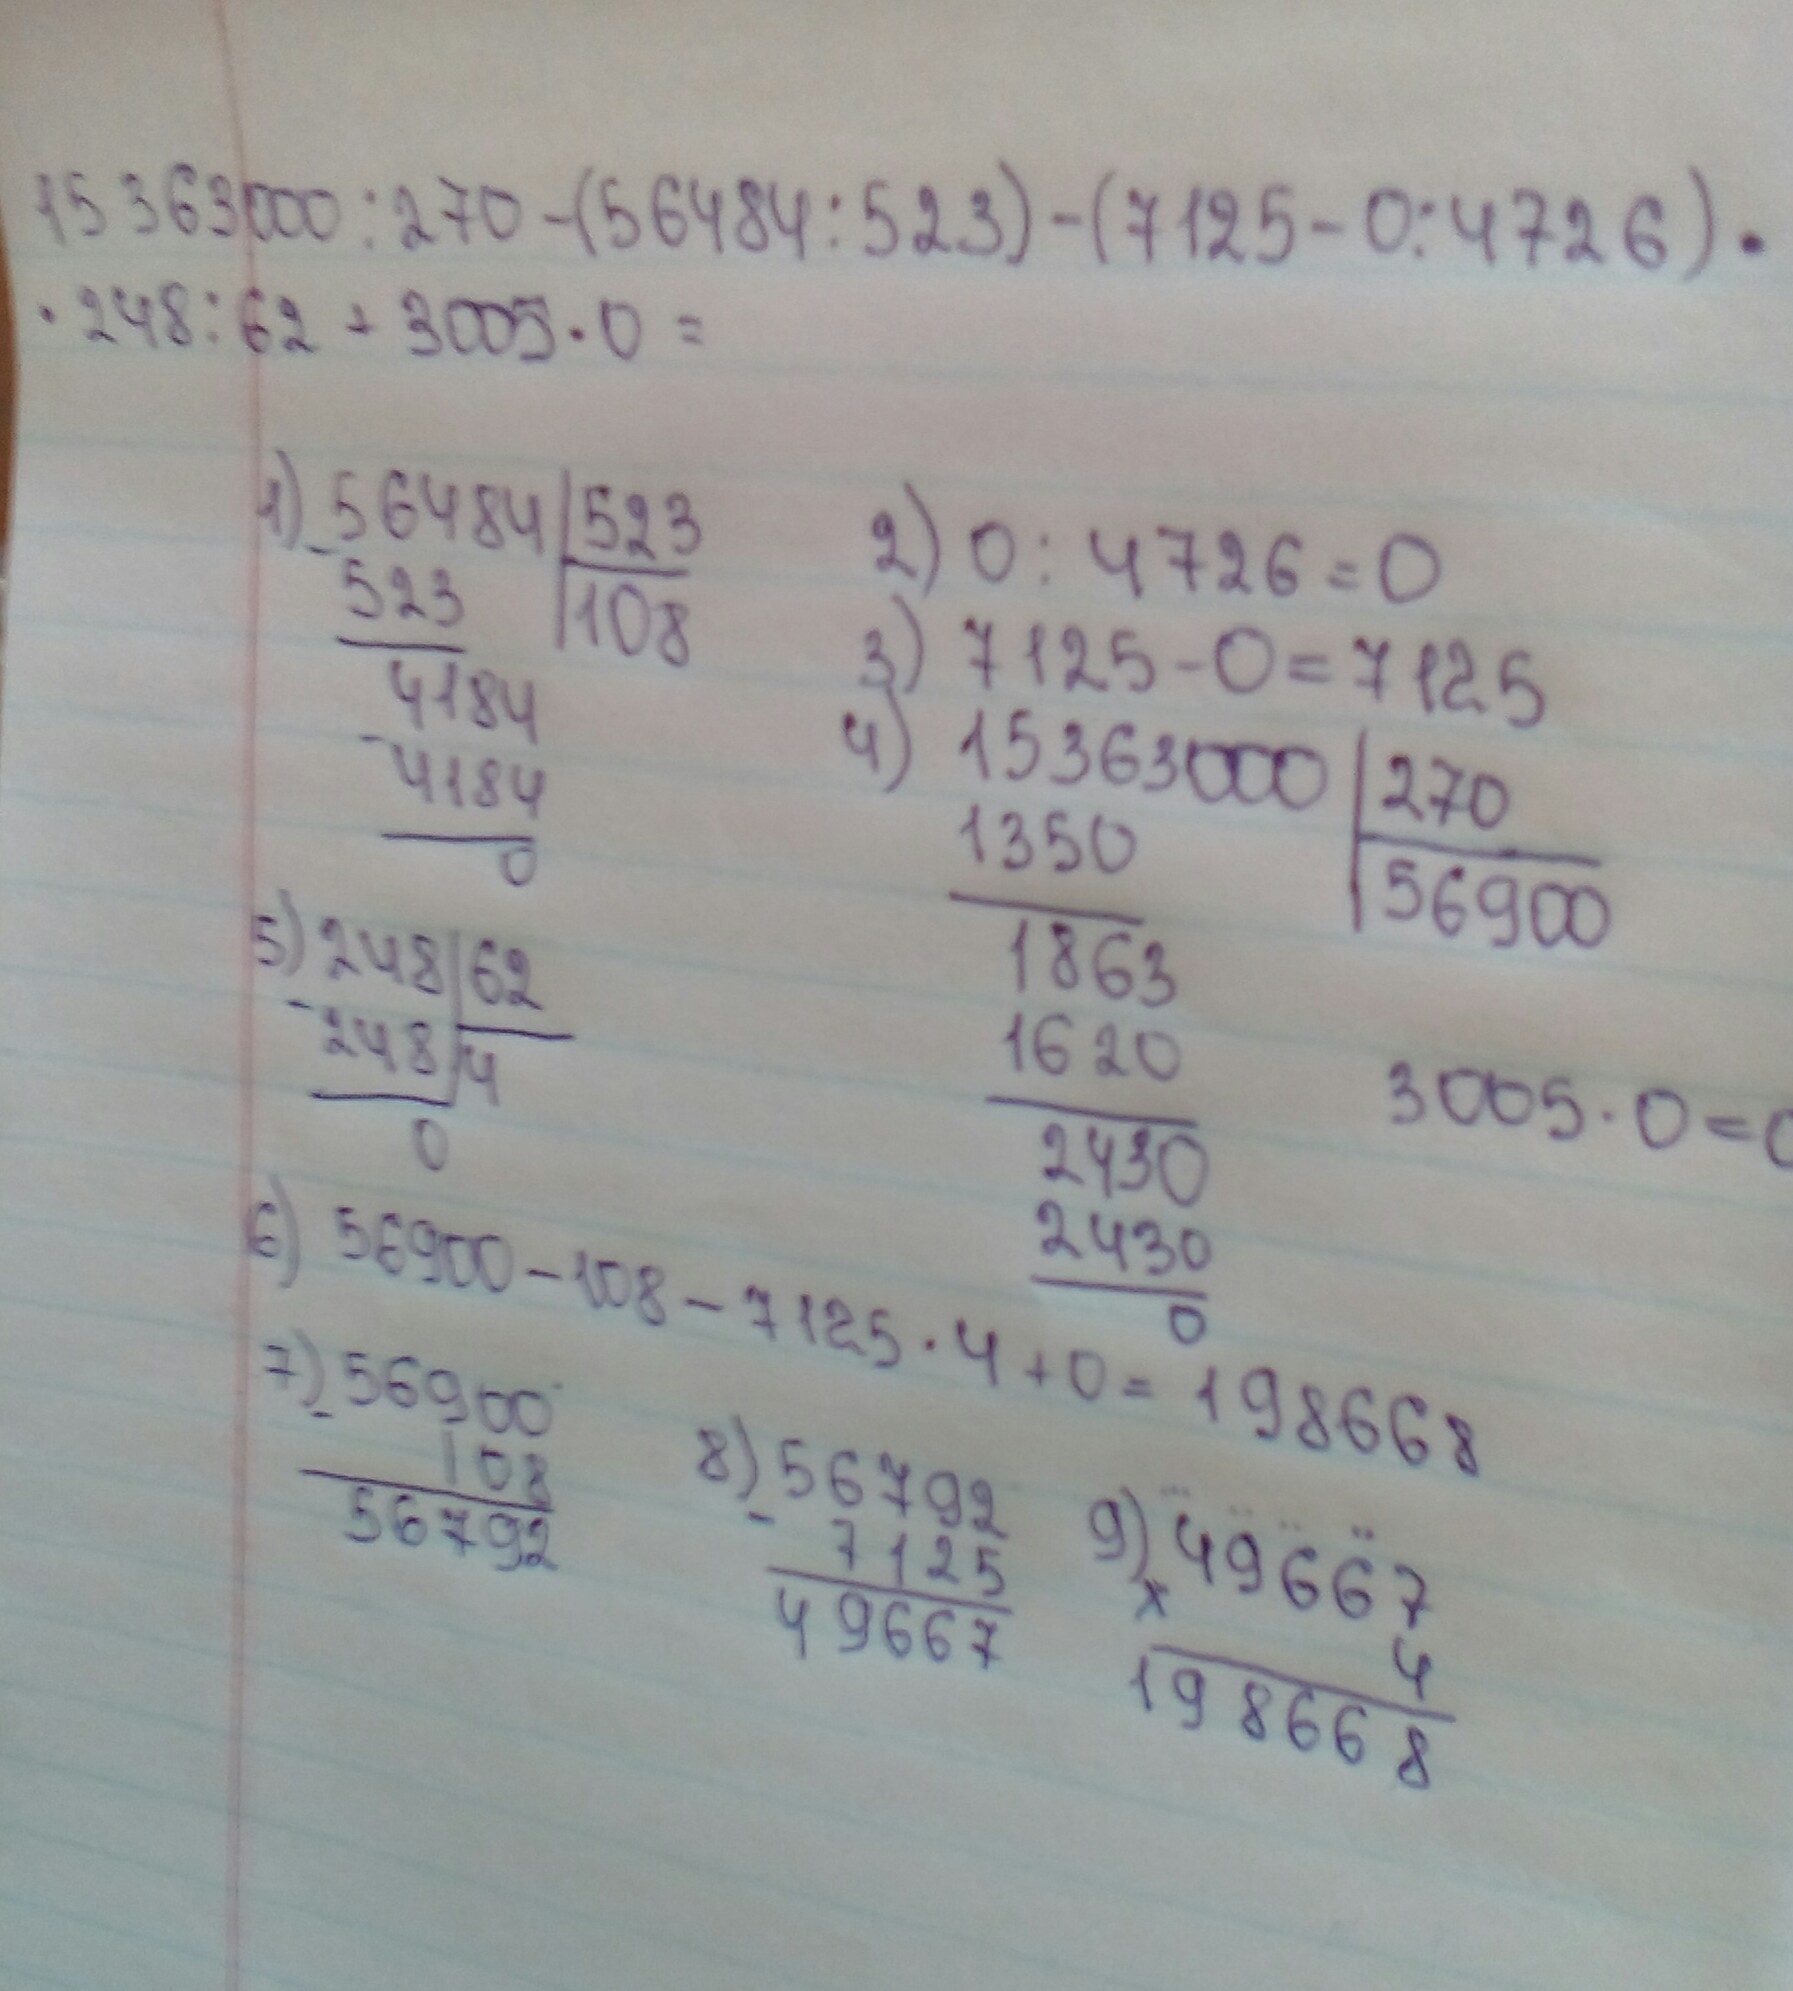 15363000:270-(56484:523)-(7125-0:4726)·
·248:62+3005·0=
1) 56484 | 523
- 523 | 108
4184
- 4184
0
2) 0:4726=0
3) 7125-0=7125
4) 15363000 | 270
1350 | 56900
1863
1620
2430
2430
0
5) 248 | 62
- 248 | 4
0
3005·0=0
6) 56900-108-7125·4+0=198668
7) 56900
- 108
56792
8) 56792
- 7125
49667
9) 49667
x 4
198668